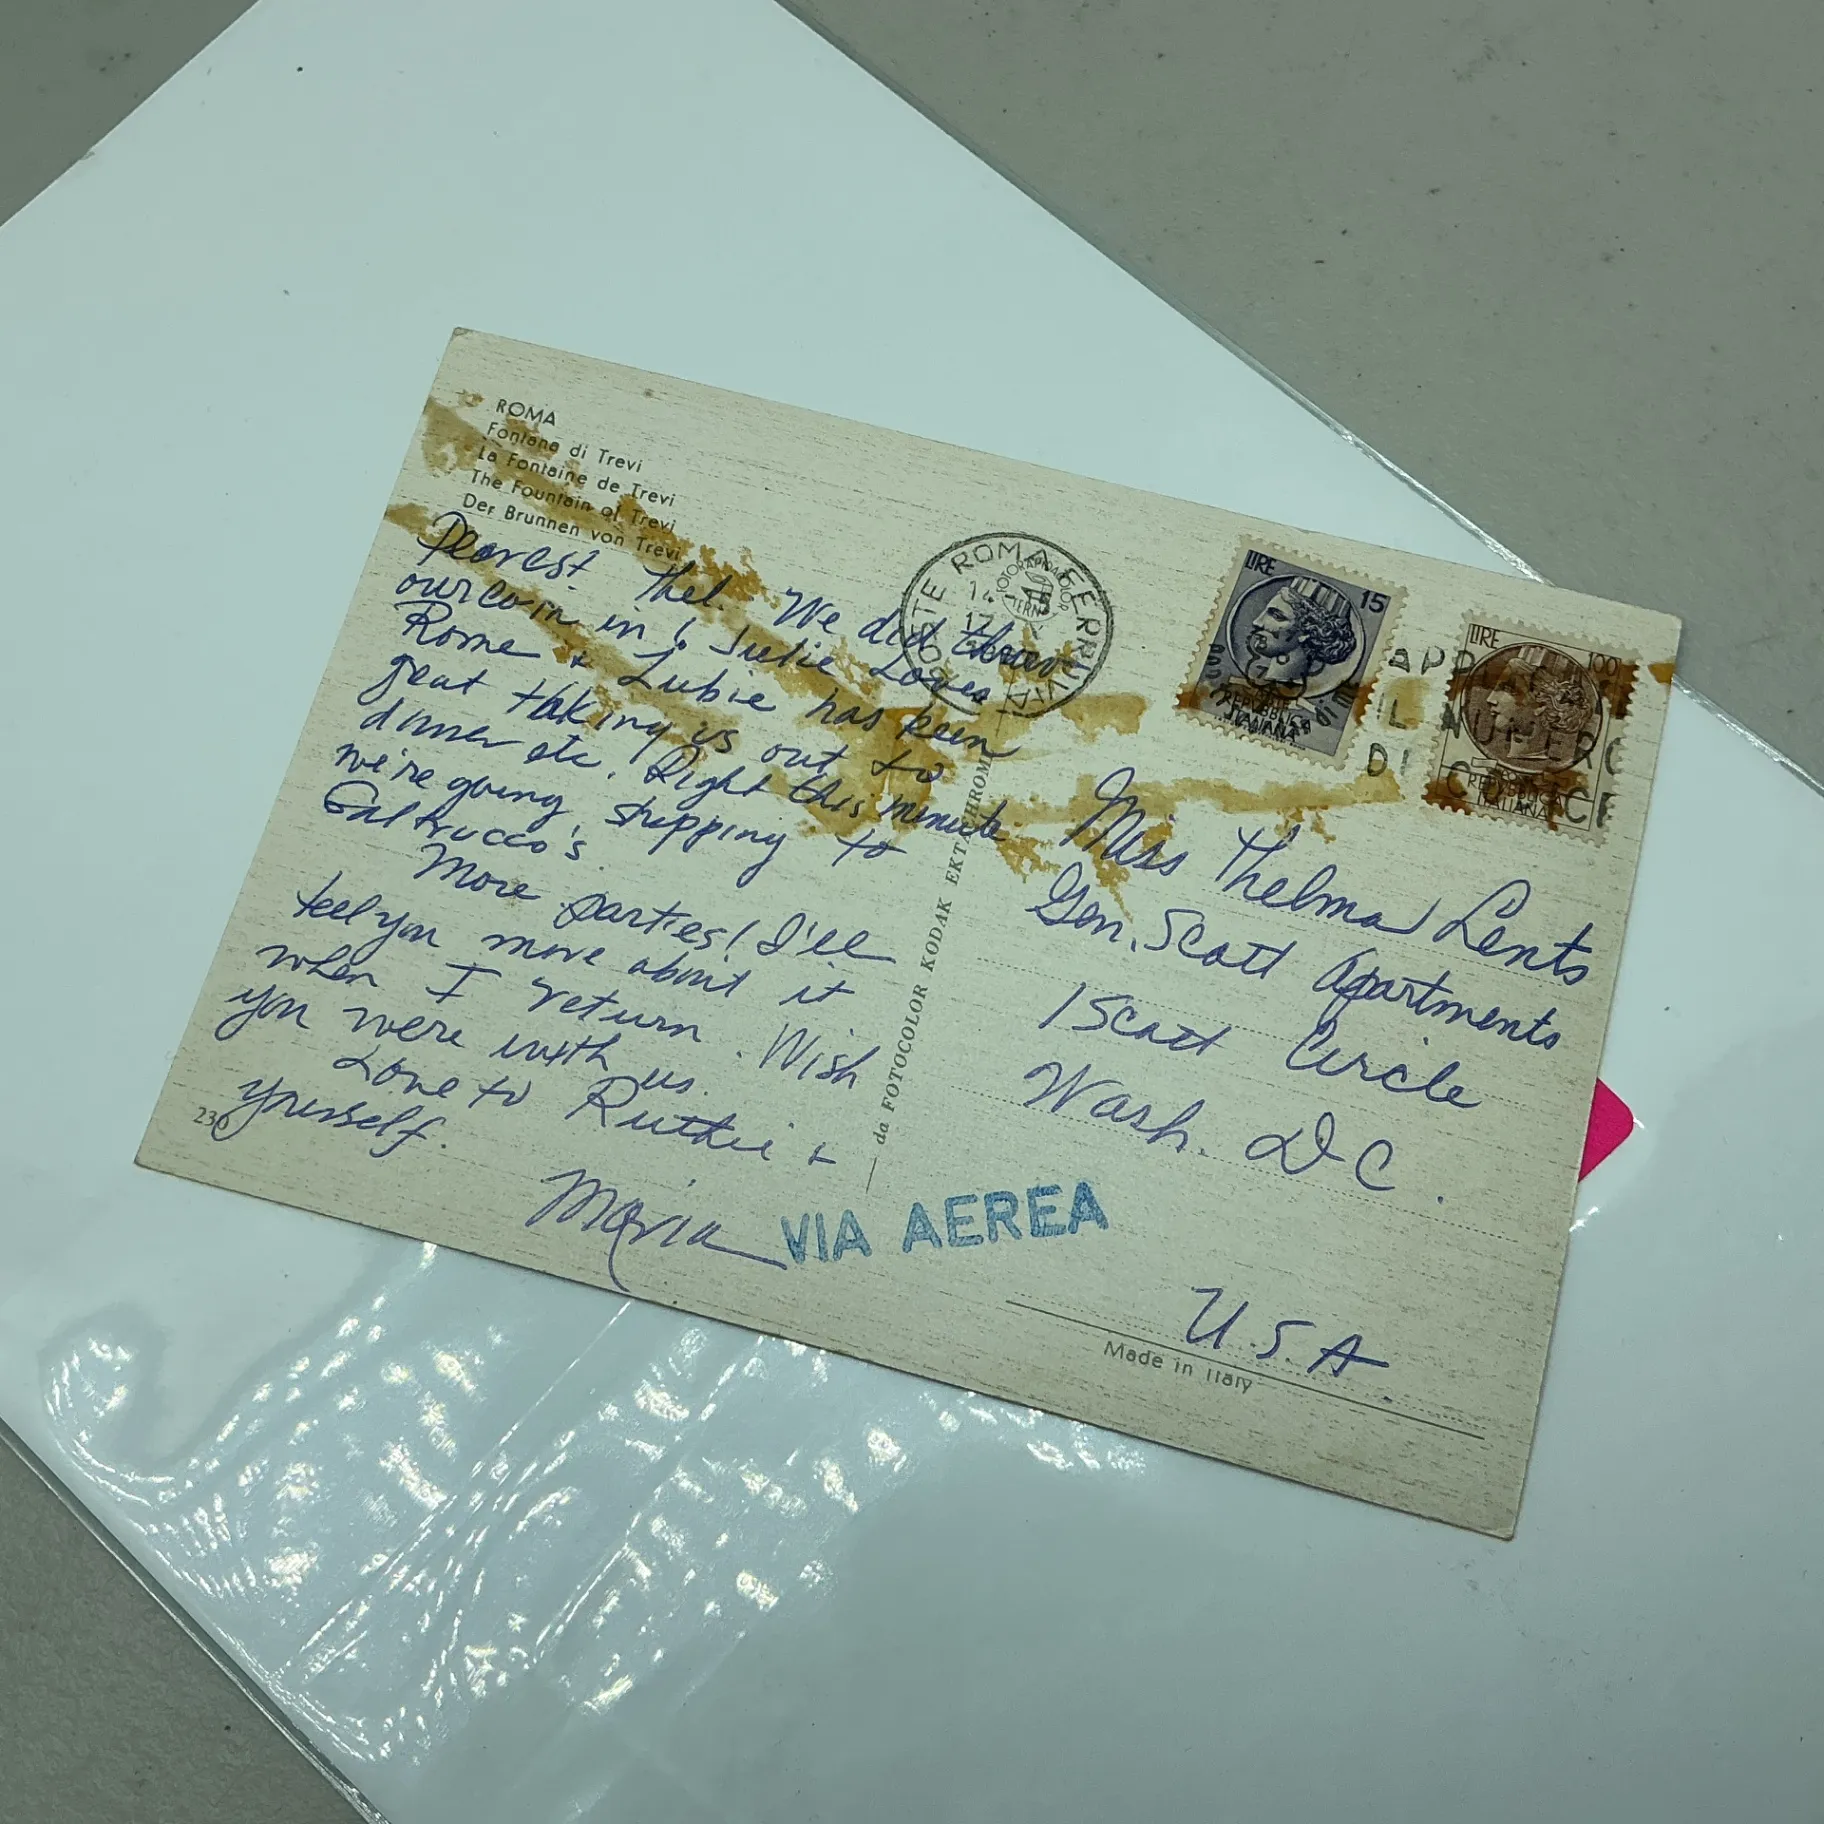 ROMA
Fontana di Trevi
La Fontaine de Trevi
The Fountain of Trevi
Der Brunnen von Trevi
Dearest Thel. We did throw
our coin in & Julie Loves
Rome & Lubie has been
great taking us out to
dinner etc. Right this minute
we're going shopping to
Galtrucco's.
More parties! I'll
tell you more about it
when I return. Wish
you were with us.
Love to Ruthie &
yourself.
Maria
230
da FOTOCOLOR KODAK EKTACHROME
POSTE ROMA FERROVIA
14
17
LIRE 15
REPUBBLICA
ITALIANA
LIRE 100
REPUBBLICA
ITALIANA
IL NUMERO
DI CODICE
Miss Thelma Lents
Gen. Scott Apartments
1 Scott Circle
Wash. D C.
VIA AEREA
U.S.A.
Made in Italy